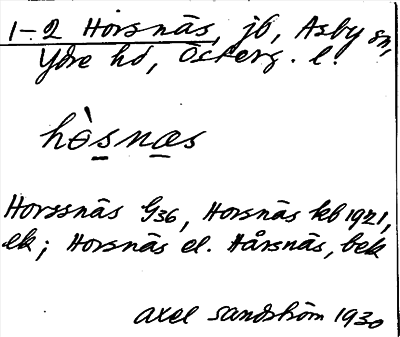 1-2 Horsnäs, jb, Asby sn,
Ydre hd, Österg. l.
hòs̠næ̠s
Horssnäs G36, Horsnäs kb 1921,
ek; Horsnäs el. Hårsnäs, bek
Axel Sandström 1930